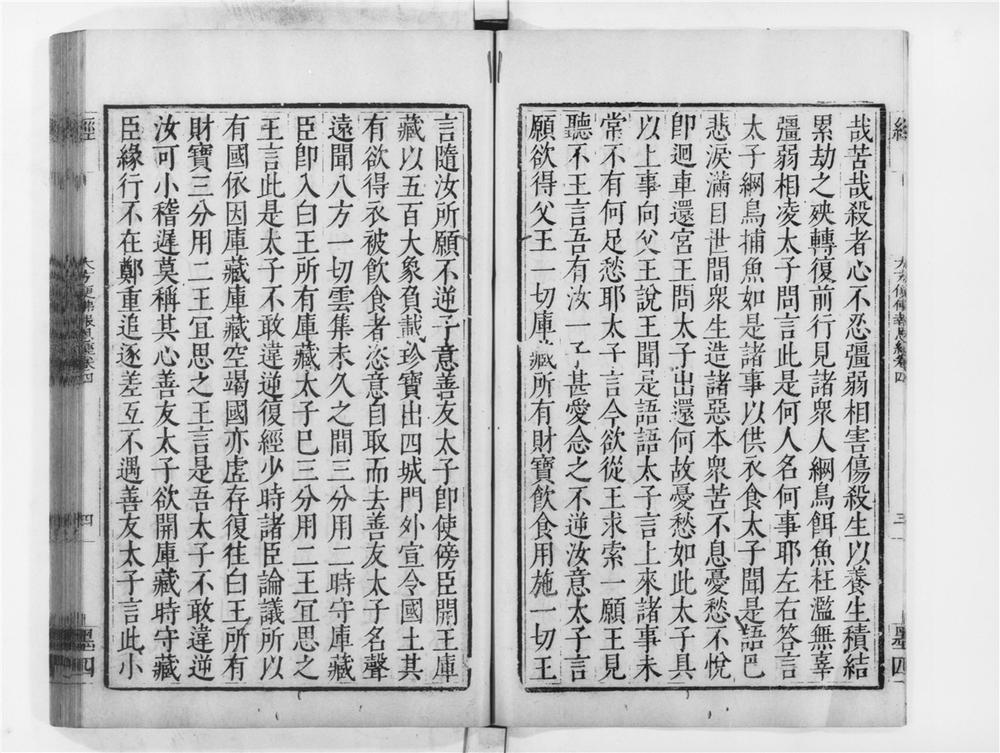 哉苦哉殺者心不忍彊弱相害傷殺生以養生積結
累劫之殃轉復前行見諸衆人綱鳥餌魚枉濫無辜
彊弱相凌太子問言此是何人名何事耶左右答言
太子綱鳥捕魚如是諸事以供衣食太子聞是語巴
悲淚滿目世間衆生造諸惡本衆苦不息憂愁不悅
卽迴車還宮王問太子出還何故憂愁如此太子具
以上事向父王說王聞是語語太子言上來諸事未
常不有何足愁耶太子言今欲從王求索一願王見
聽不王言吾有汝一子甚愛念之不逆汝意太子言
願欲得父王一切庫藏所有財寶飲食用施一切王
經
大方便佛報恩經卷四
三
墨四
言隨汝所願不逆子意善友太子卽使傍臣開王庫
藏以五百大象負載珍寶出四城門外宣令國土其
有欲得衣被飲食者恣意自取而去善友太子名聲
遠聞八方一切雲集未久之間三分用二時守庫藏
臣卽入白王所有庫藏太子巳三分用二王宜思之
王言此是太子不敢違逆復經少時諸臣論議所以
有國依因庫藏庫藏空竭國亦虛存復徃白王所有
財寶三分用二王宜思之王言是吾太子不敢違逆
汝可小稽遲莫稱其心善友太子欲開庫藏時守藏
臣緣行不在鄭重追逐差互不遇善友太子言此小
經
大方便佛報恩經卷四
四
墨四